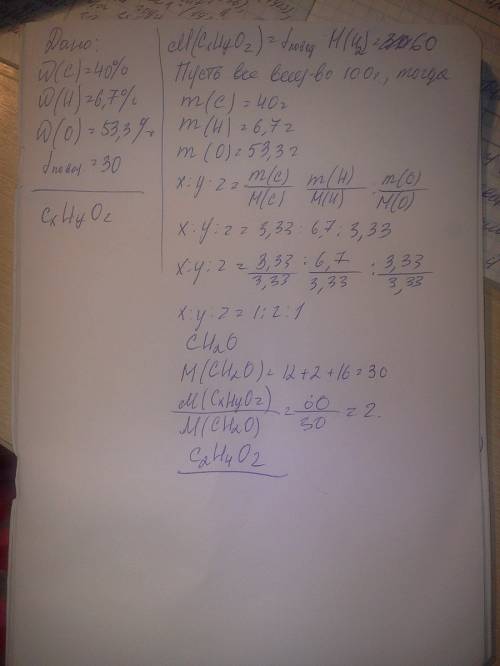 Дано:
W(C)=40%
W(H)=6,7%
W(O)=53,3%
=30
CxHyOz
M(CxHyOz)= M(H2)= 60
Пусть все вещ-во 100г, тогда
m(C)=40г
m(H)=6,7г
m(O)=53,3г
x:y:z= m(C)/M(C) m(H)/M(H) : m(O)/M(O)
x:y:z=3,33:6,7:3,33
x:y:z= 3,33/3,33 : 6,7/3,33 : 3,33/3,33
x:y:z=1:2:1
CH2O
M(CH2O)=12+2+16=30
M(CxHyOz)/M(CH2O) = 60/30 =2.
C2H4O2